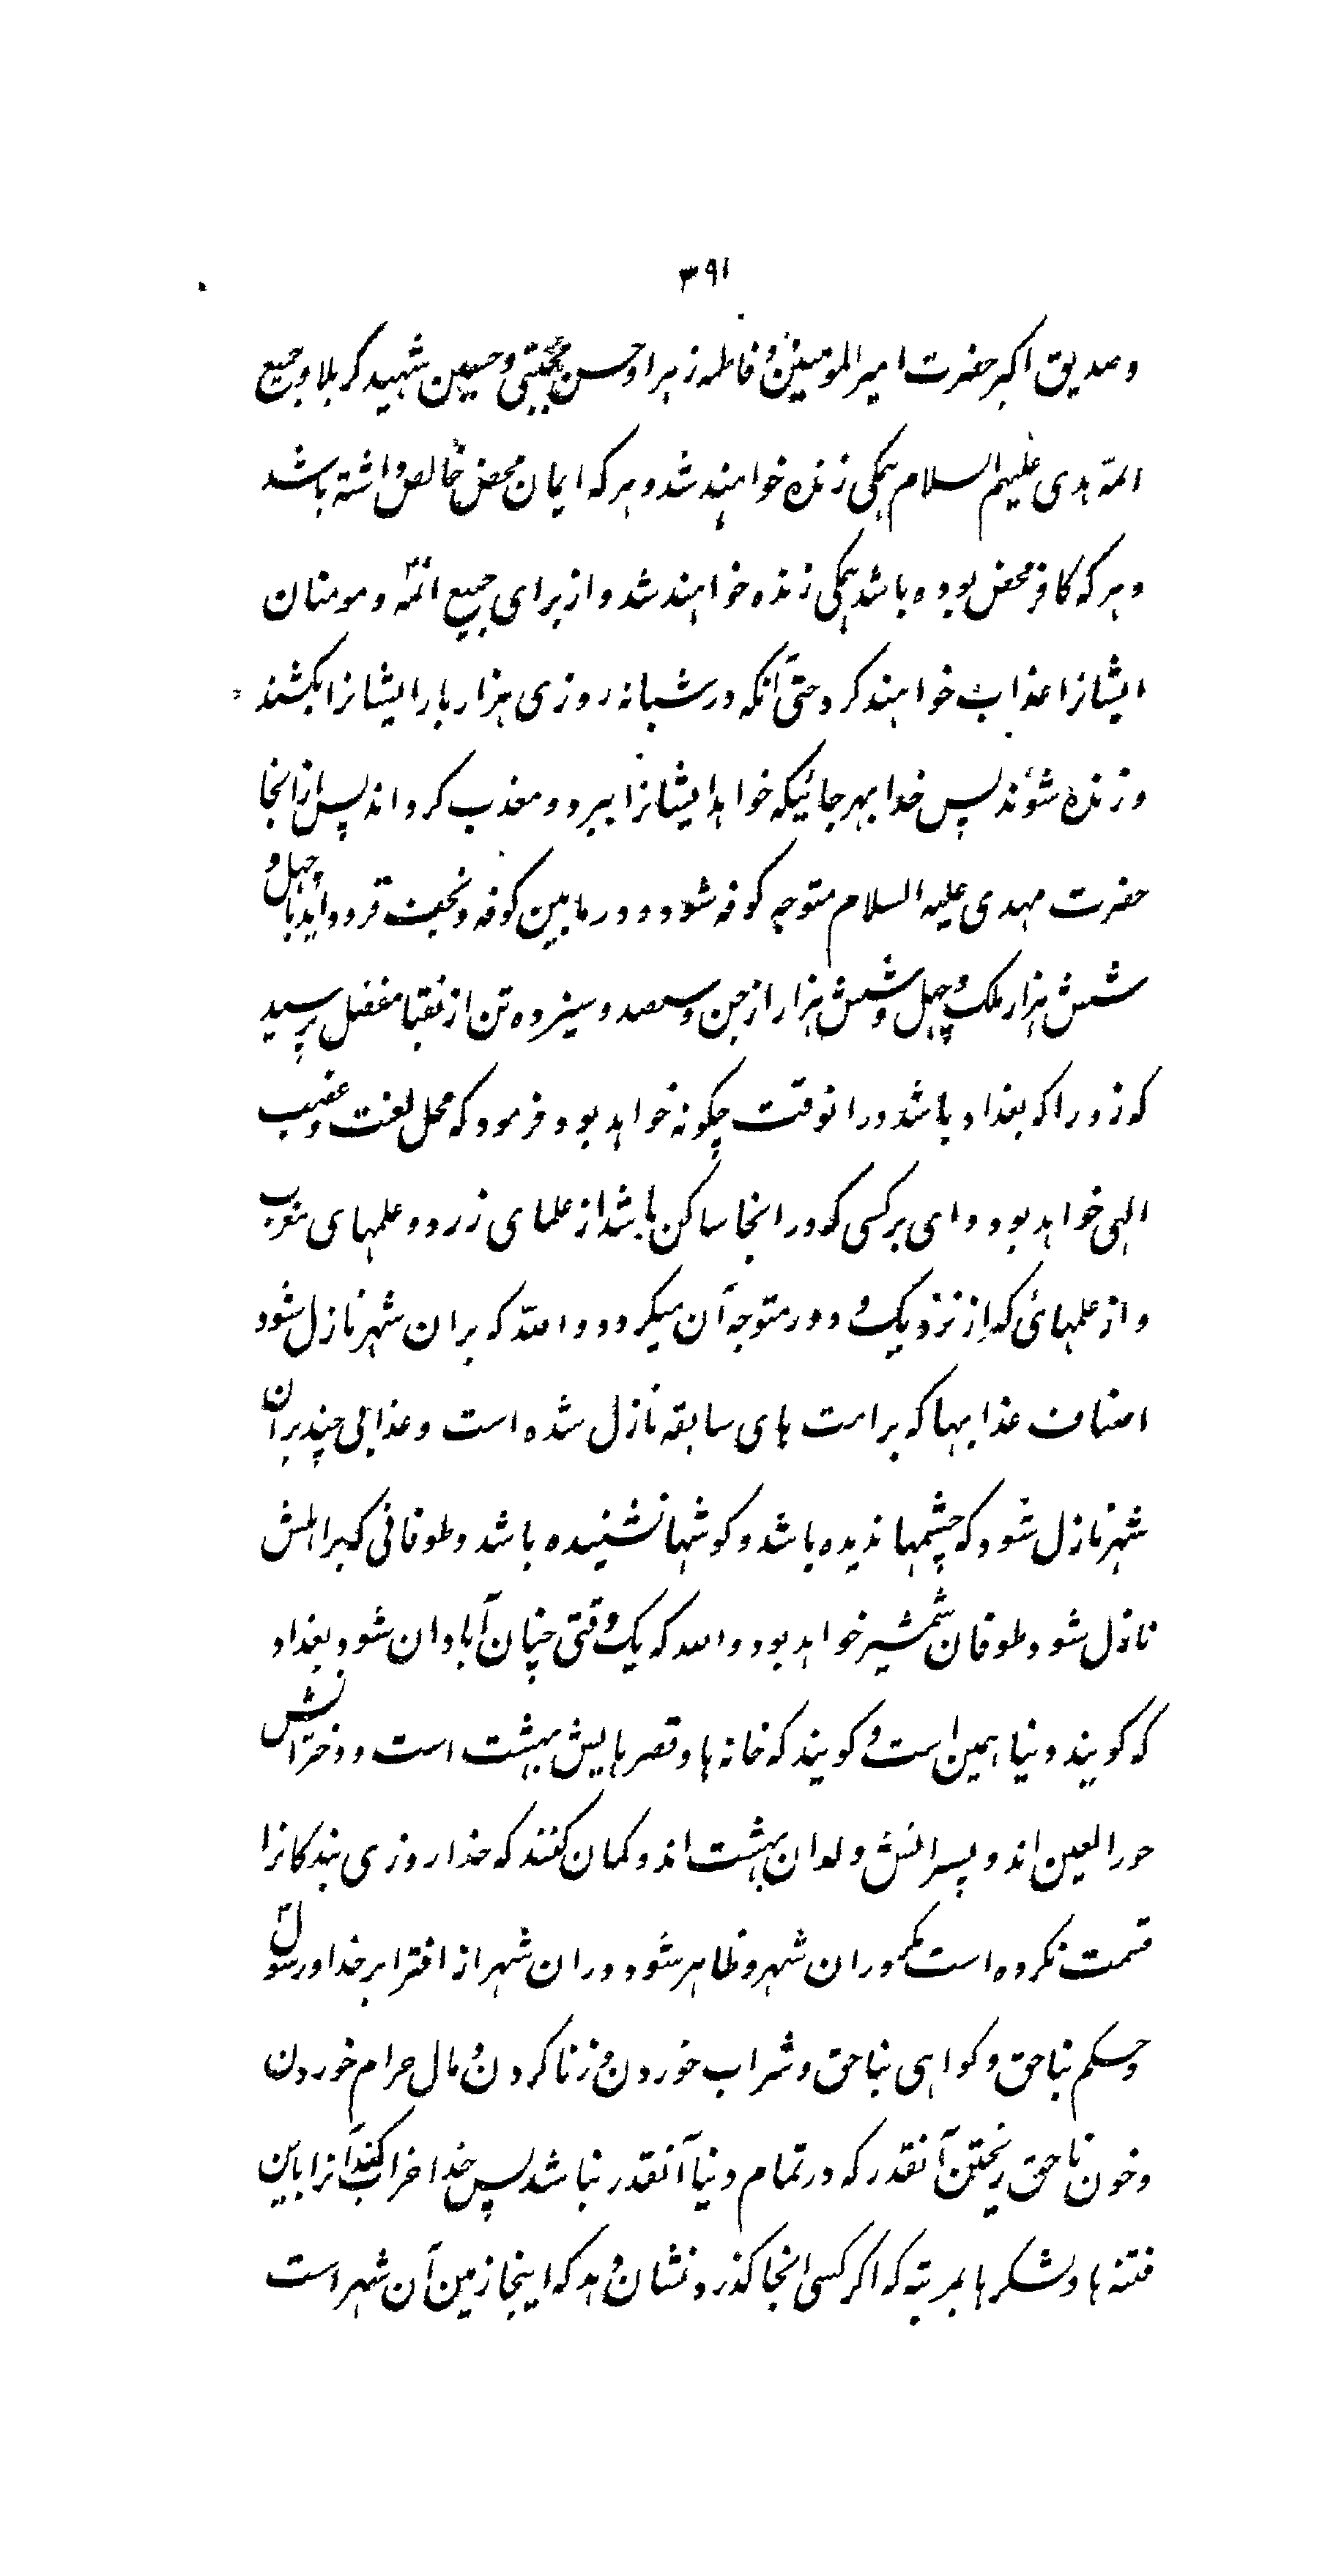 ۳۹۱
و صدیق اکبر حضرت امیر المومنین و فاطمه زهرا و حسن مجتبی و حسین شهید کربلا و جمیع
ائمّه هدی علیهم السلام همکی زنده خواهند شد و هر که ایمان محض خالص داشته باشد
و هر که کافر محض بوده باشد همکی زنده خواهند شد و از برای جمیع ائمه و مومنان
ایشانرا عذاب خواهند کرد حتی آنکه در شبانه روزی هزار بار ایشانرا بکشند
و زنده شوند پس خدا بهر جائیکه خواهد ایشانرا ببرد و معذب کرداند پس از انجا
حضرت مهدی علیه السلام متوجه کوفه شود و در مابین کوفه و نجف فرود اید با چهل و
شش هزار ملک و چهل و شش هزار از جن و سیصد و سیزده تن از نقبا مفضل پرسید
که زورا که بغداد باشد در انوقت چکونه خواهد بود فرمود که محل لعنت و غضب
الهی خواهد بود وای بر کسی که در انجا ساکن باشد از علمای زرد و علمهای مغرب
و از علمهائی که از نزدیک و دور متوجه آن میکردد و اللّه که بران شهر نازل شود
اصناف عذابها که بر امت های سابقه نازل شده است و عذابی چند بر آن
شهر نازل شود که چشمها ندیده باشد و کوشها نشنیده باشد و طوفانی که بر اهلش
نازل شود طوفان شمشیر خواهد بود و الله که یک وقتی چنان آبادان شود بغداد
که کویند دنیا همین است و کویند که خانه ها و قصر هایش بهشت است و دخترانش
حور العین اند و پسرانش ولدان بهشت اند و کمان کنند که خدا روزی بندکانرا
قسمت نکرده است مکر در ان شهر و ظاهر شود در ان شهر از افترا بر خدا و رسول
و حکم بناحق و کواهی بناحق و شراب خوردن و زنا کردن و مال حرام خوردن
و خون ناحق ریختن آنقدر که در تمام دنیا آنقدر نباشد پس خدا خراب کند آنرا باین
فتنه ها و لشکرها بمرتبه که اکر کسی انجا کذرد نشان دهد که اینجا زمین آن شهر است